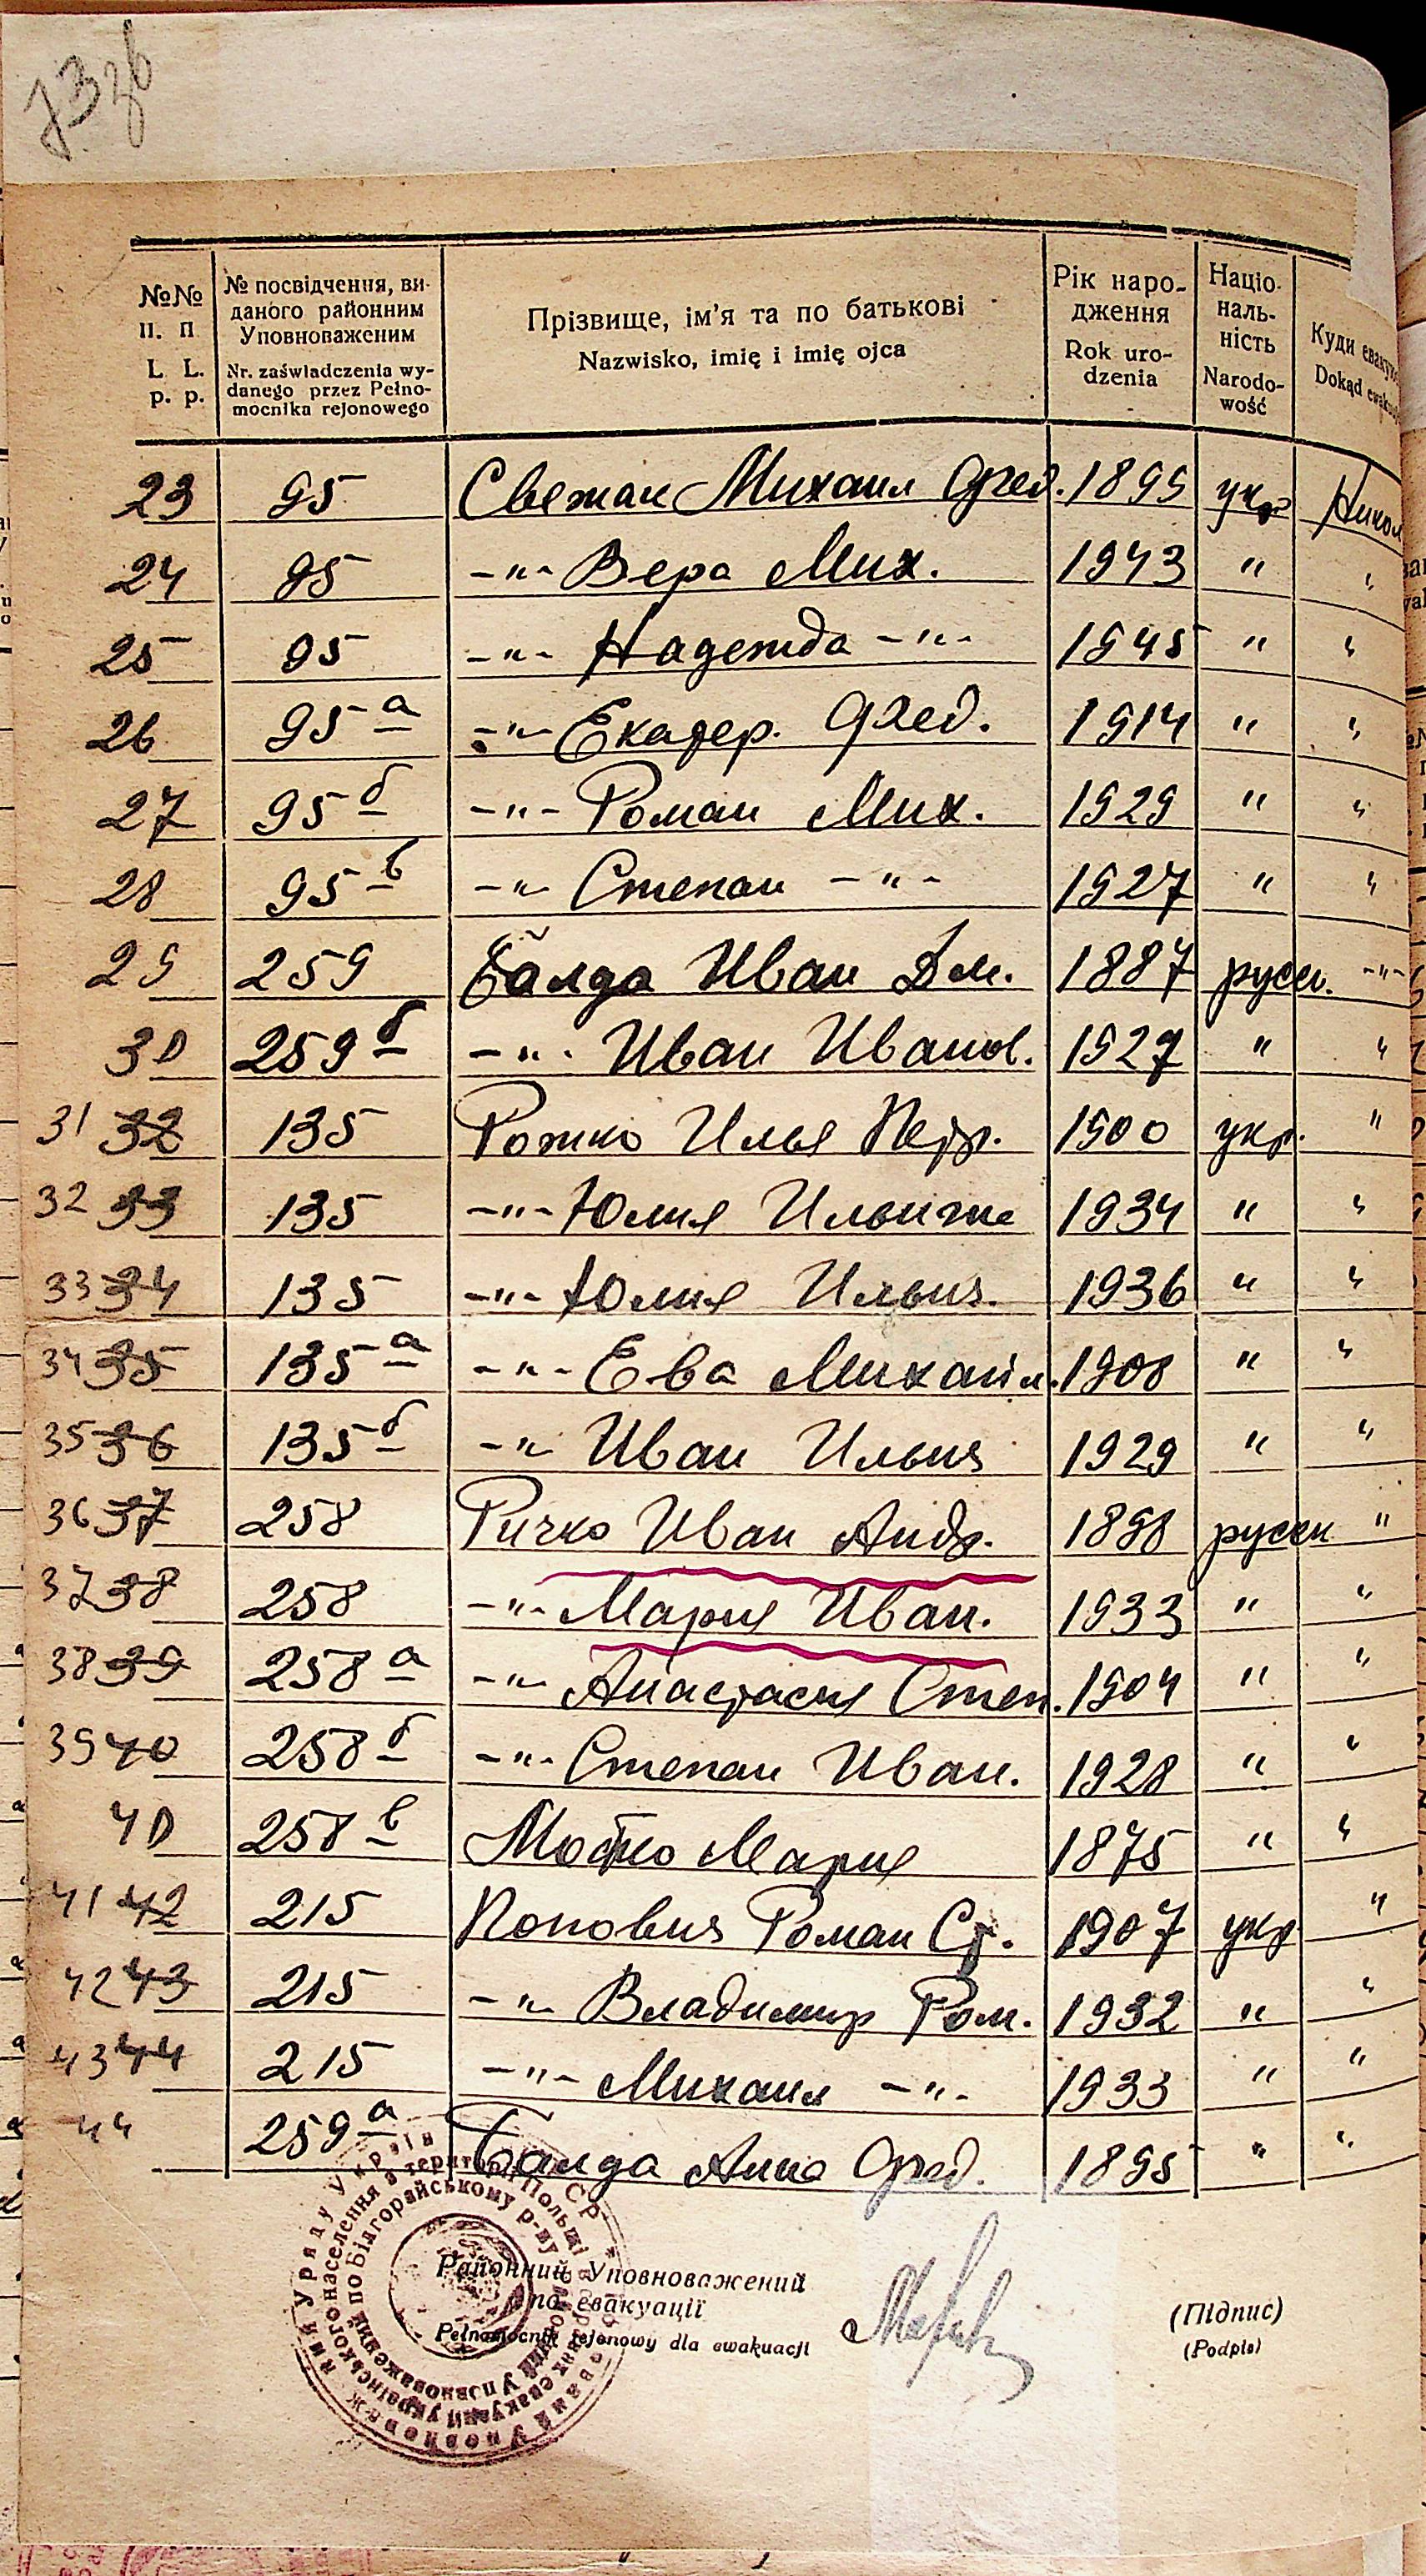 73 зв
№№ п. п
L. L. p. p.
№ посвідчення, ви-
даного районним
Уповноваженим
Nr. zaświadczenia wy-
danego przez Pełno-
mocnika rejonowego
Прізвище, ім'я та по батькові
Nazwisko, imię i imię ojca
Рік наро-
дження
Rok uro-
dzenia
Націо-
наль-
ність
Narodo-
wość
Куди евакую
Dokąd ewaku
23 95 Свежак Михаил Фед. 1895 укр Никол
24 95 -"- Вера Мих. 1943 " "
25 95 -"- Надежда -"- 1945 " "
26 95а -"- Екатер. Фед. 1914 " "
27 95б -"- Роман Мих. 1929 " "
28 95в -"- Степан -"- 1927 " "
29 259 Балда Иван Дм. 1887 русск. -"-
30 259б -"- Иван Иванов. 1927 " "
31 32 135 Рожко Илья Петр. 1900 укр. "
32 33 135 -"- Юлия 1934 " "
33 34 135 -"- Юлия Ильин. 1936 " "
34 35 135а -"- Ева Михайл. 1908 " "
35 36 135б -"- Иван Ильич 1929 " "
36 37 258 Ричко Иван Андр. 1898 русск "
37 38 258 -"- Мария Иван. 1933 " "
38 39 258а -"- Анастасия Степ. 1904 " "
39 40 258б -"- Степан Иван. 1928 " "
40 258в Мария 1875 " "
41 42 215 Попович Роман Ст. 1907 укр "
42 43 215 -"- Владимир Ром. 1932 " "
43 44 215 -"- Михаил -"- 1933 " "
44 259а Балда Анна Фед. 1895 " "
Районний Уповноважений
по евакуації
Pełnomocnik rejonowy dla ewakuacji
(Підпис)
(Podpis)